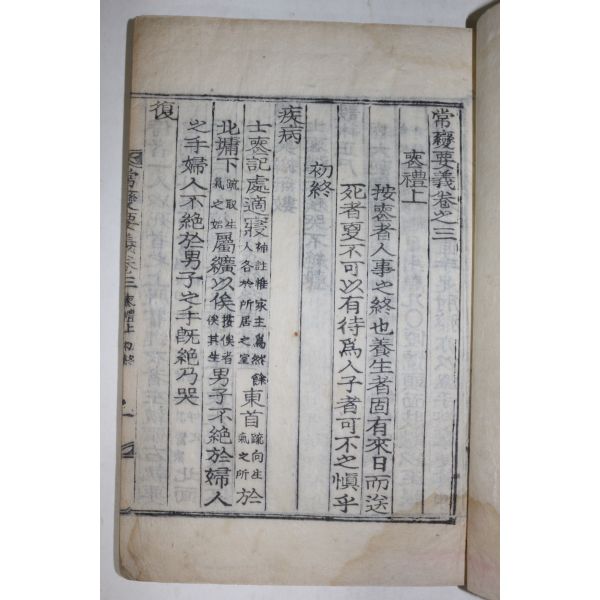 常變要義卷之三
喪禮上
按喪者人事之終也養生者固有來日而送
死者更不可以有待爲人子者可不之愼乎
初終
疾病
士喪記處適寢補註惟家主爲然餘人各於所居之室東首疏向生氣之所於
北墉下疏取生氣之始屬纊以俟俟其生男子不絶於婦人
之手婦人不絶於男子之手旣絶乃哭
復
常變要義卷三 喪禮上 初終 一